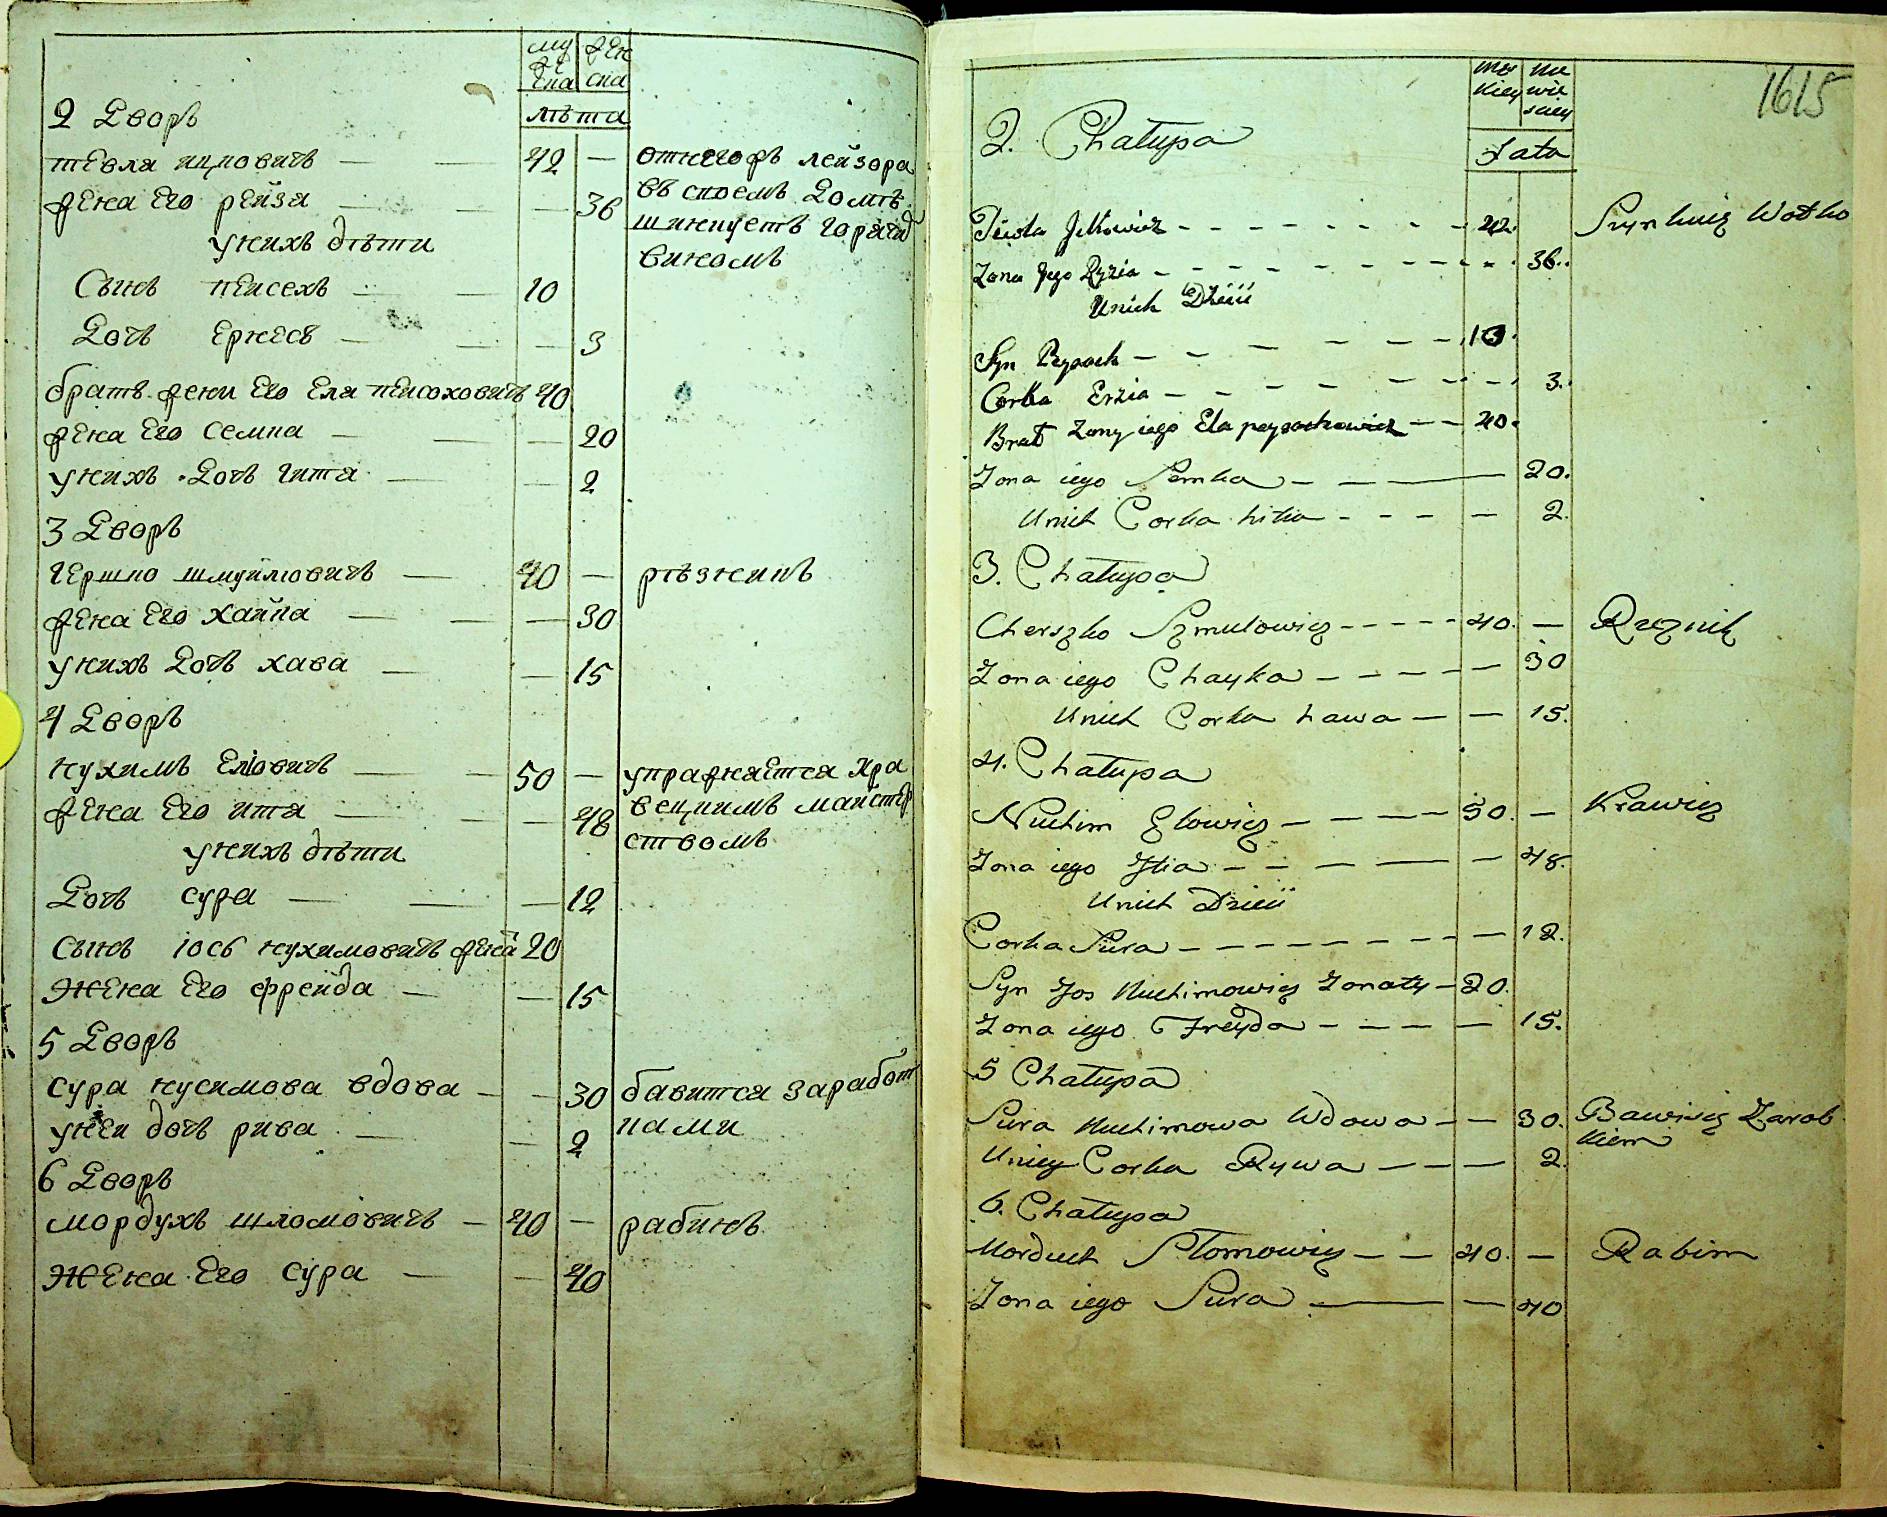 му же ска
жен ска
лѣта
2 Дворъ
тевля ицковичъ — — 42 — отнегожъ лейзора
жена Его рейза — — — 36 въ своемъ Домѣ
унихъ дѣти шинкуетъ горячѣ
виномъ
Сынъ пейсехъ — — 10
Дочь Ернесъ — — — 3
братъ жени Его Еля пейсоховичъ 40
жена Его Семка — — — 20
унихъ Дочь гита — — 2
3 Дворъ
гершко шмуйловичъ — 40 — рѣзникъ
жена Его хайка — — — 30
унихъ Дочь хава — — 15
4 Дворъ
нухимъ Еліовичъ — — 50 — упражняется кра
жена Его ита — — — 48 вецкимъ майстер
унихъ дѣти ствомъ
Дочь сура — — — 12
Сынъ іось нухимовичъ жена 20
Жена Его фрейда — — 15
5 Дворъ
сура нусимова вдова — — 30 бавится заработ
уней дочь рива — — 2 ками
6 Дворъ
мордухъ шломовичъ — 40 — рабинъ
Жена Его сура — — 40
1615
mę kiey
nie wie sciey
Lata
2. Chałupa
Tewla Jckowicz - - - - - - - 42. Szynkuię Wotko
Zona Jego Ryzia - - - - - - - - - 36.
Unich Dzieci
Syn Peysach - - - - - - 10.
Corka Erzia - - - - - - - 3.
Brat Zony iego Ela peysachowicz - - 40.
Zona iego Semka - - — — 20.
Unich Corka hitia - - - — 2.
3. Chałupa
Cherszko Szmulowicz - - - - - 40. — Rzeznik
Zona iego Chayka - - - - — 30
Unich Corka hawa — — 15.
4. Chałupa
Nuchim Elowicz - - - - - 50. — Krawicz
Zona iego Jtia - - - — — 48.
Unich Dzieci
Corka Sura - - - - - - - - - — 12.
Syn Jos Nuchimowicz Zonaty - 20.
Zona iego Freyda - - - - — 15.
5 Chałupa
Sura Nuchimowa Wdowa - - — 30. Bawisię Zarob
kiem
Uniey Corka Rywa — — — 2.
6. Chałupa
Morduch Słomowicz — — 40. — Rabim
Zona iego Sura — — 40